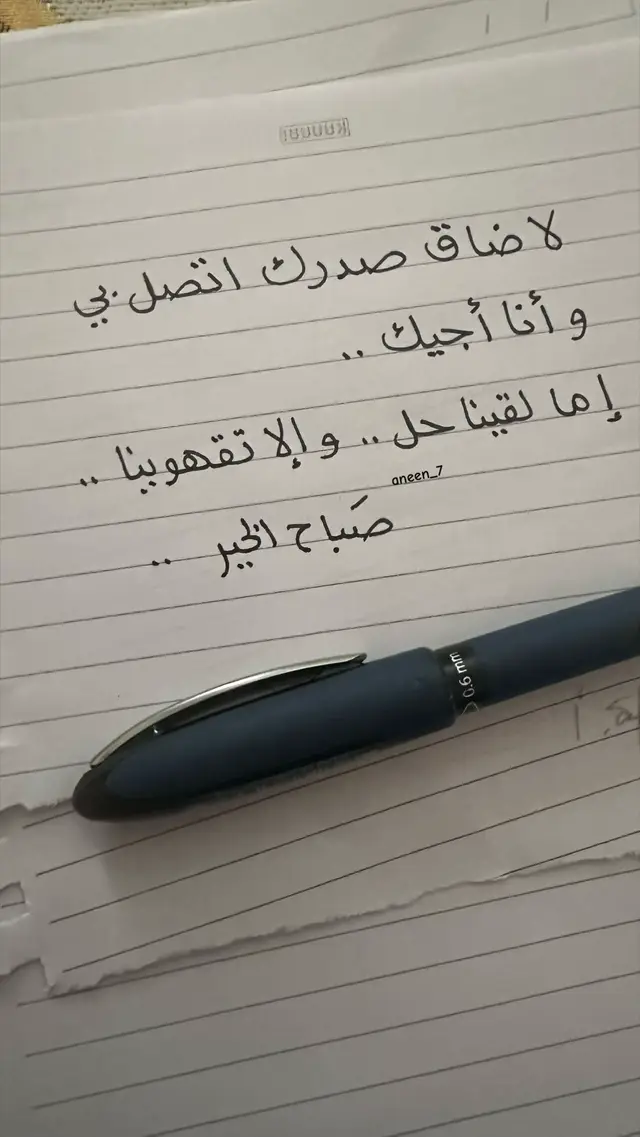 لا ضاق صدرك اتصل بي
و أنا أجيك ..
إما لقينا حل .. و إلا تقهوينا ..
aneen_7
صَباح الخير ..
0.6 mm